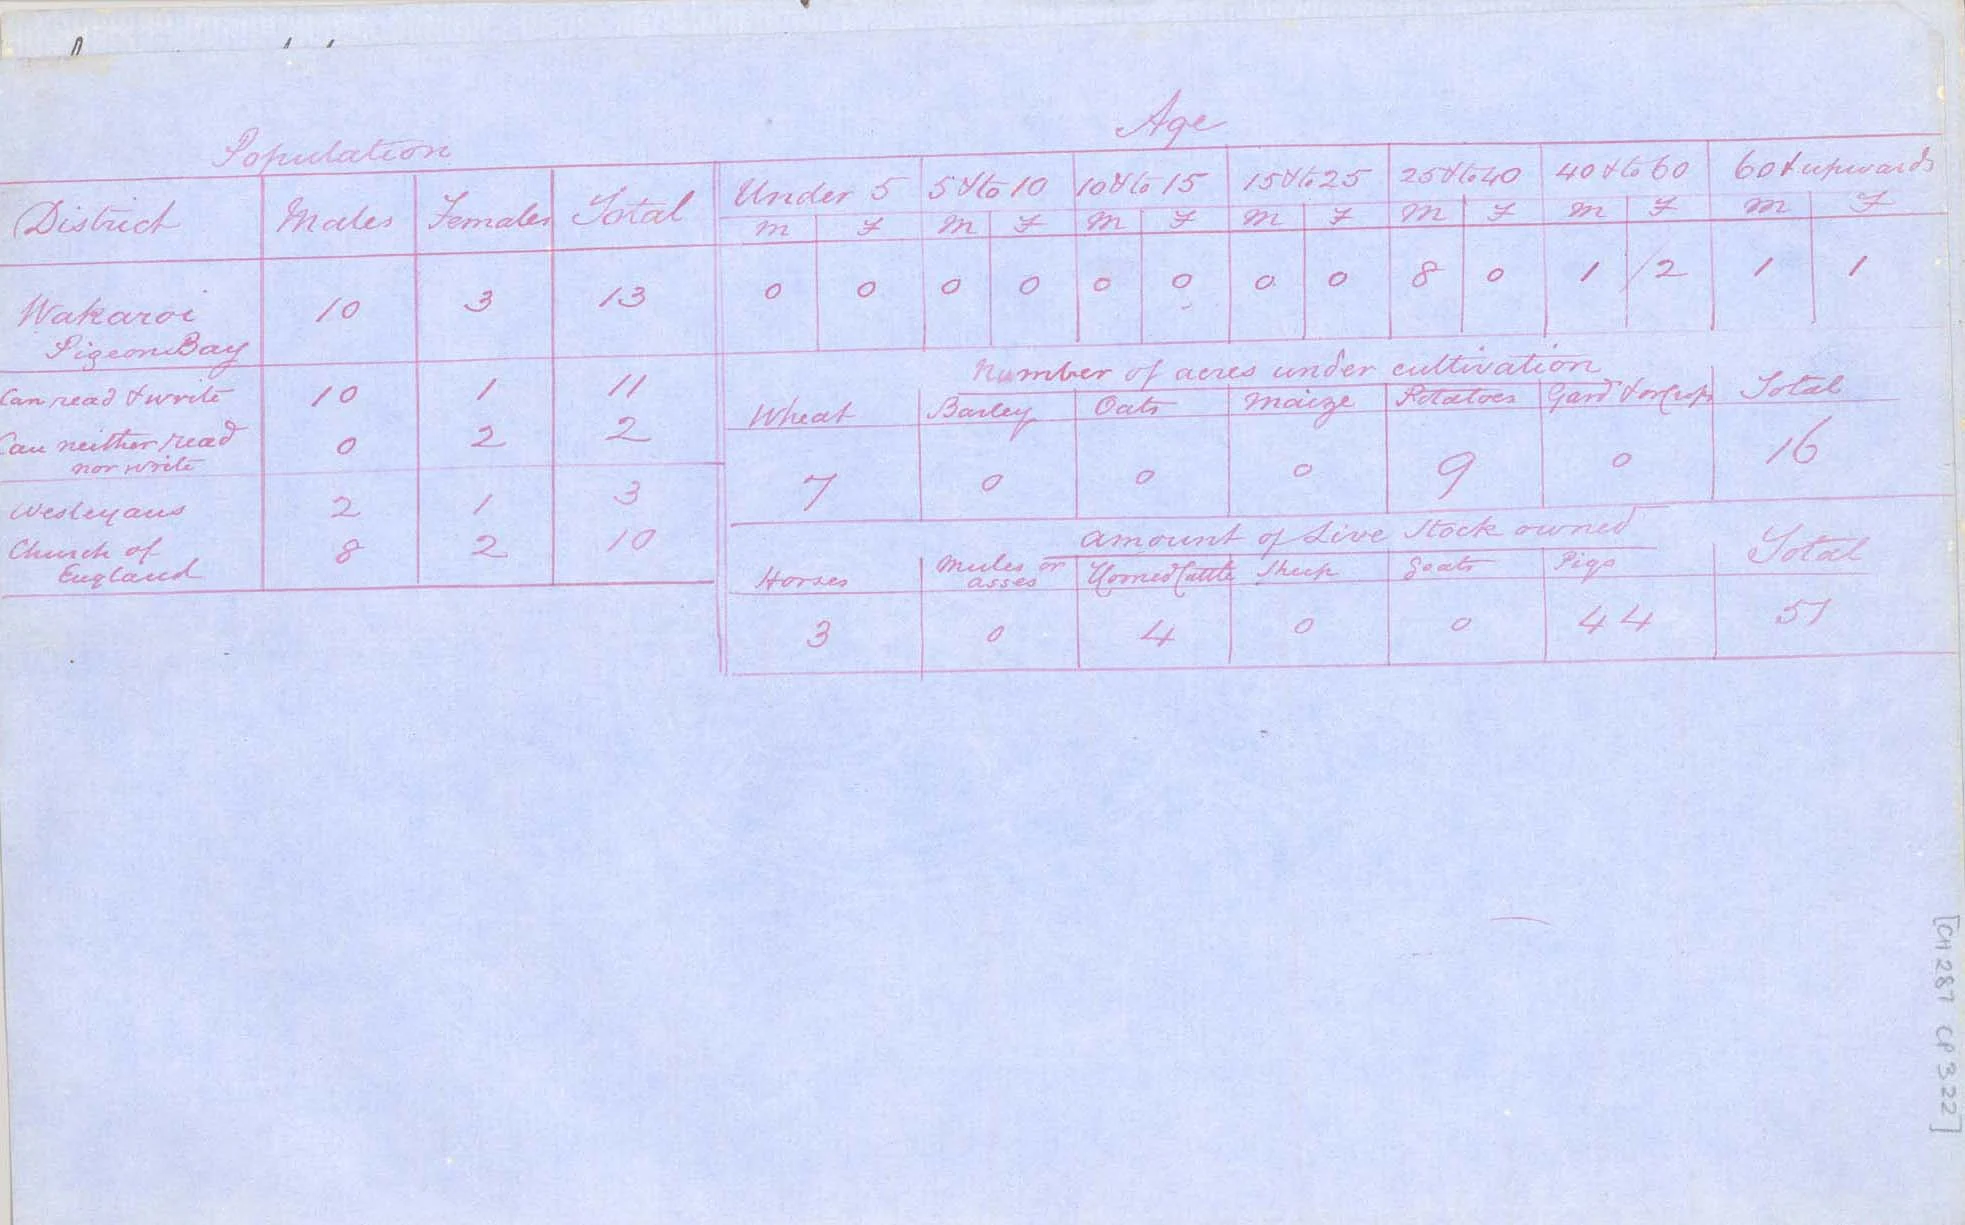 Population
Age
District Males Females Total Under 5 5 & to 10 10 & to 15 15 & to 25 25 & to 40 40 & to 60 60 & upwards
M F M F M F M F M F M F M F
Wakaroi 10 3 13 0 0 0 0 0 0 0 0 8 0 1 2 1 1
Pigeon Bay
Number of acres under cultivation
Can read & write 10 1 11 Wheat Barley Oats Maize Potatoes Gard & or Crops Total
Can neither read 0 2 2
nor write
7 0 0 0 9 0 16
Wesleyans 2 1 3
amount of Live Stock owned
Church of 8 2 10 Horses Mules or Horned Cattle Sheep Goats Pigs Total
England
asses
3 0 4 0 0 44 51
[CH287 CP322]